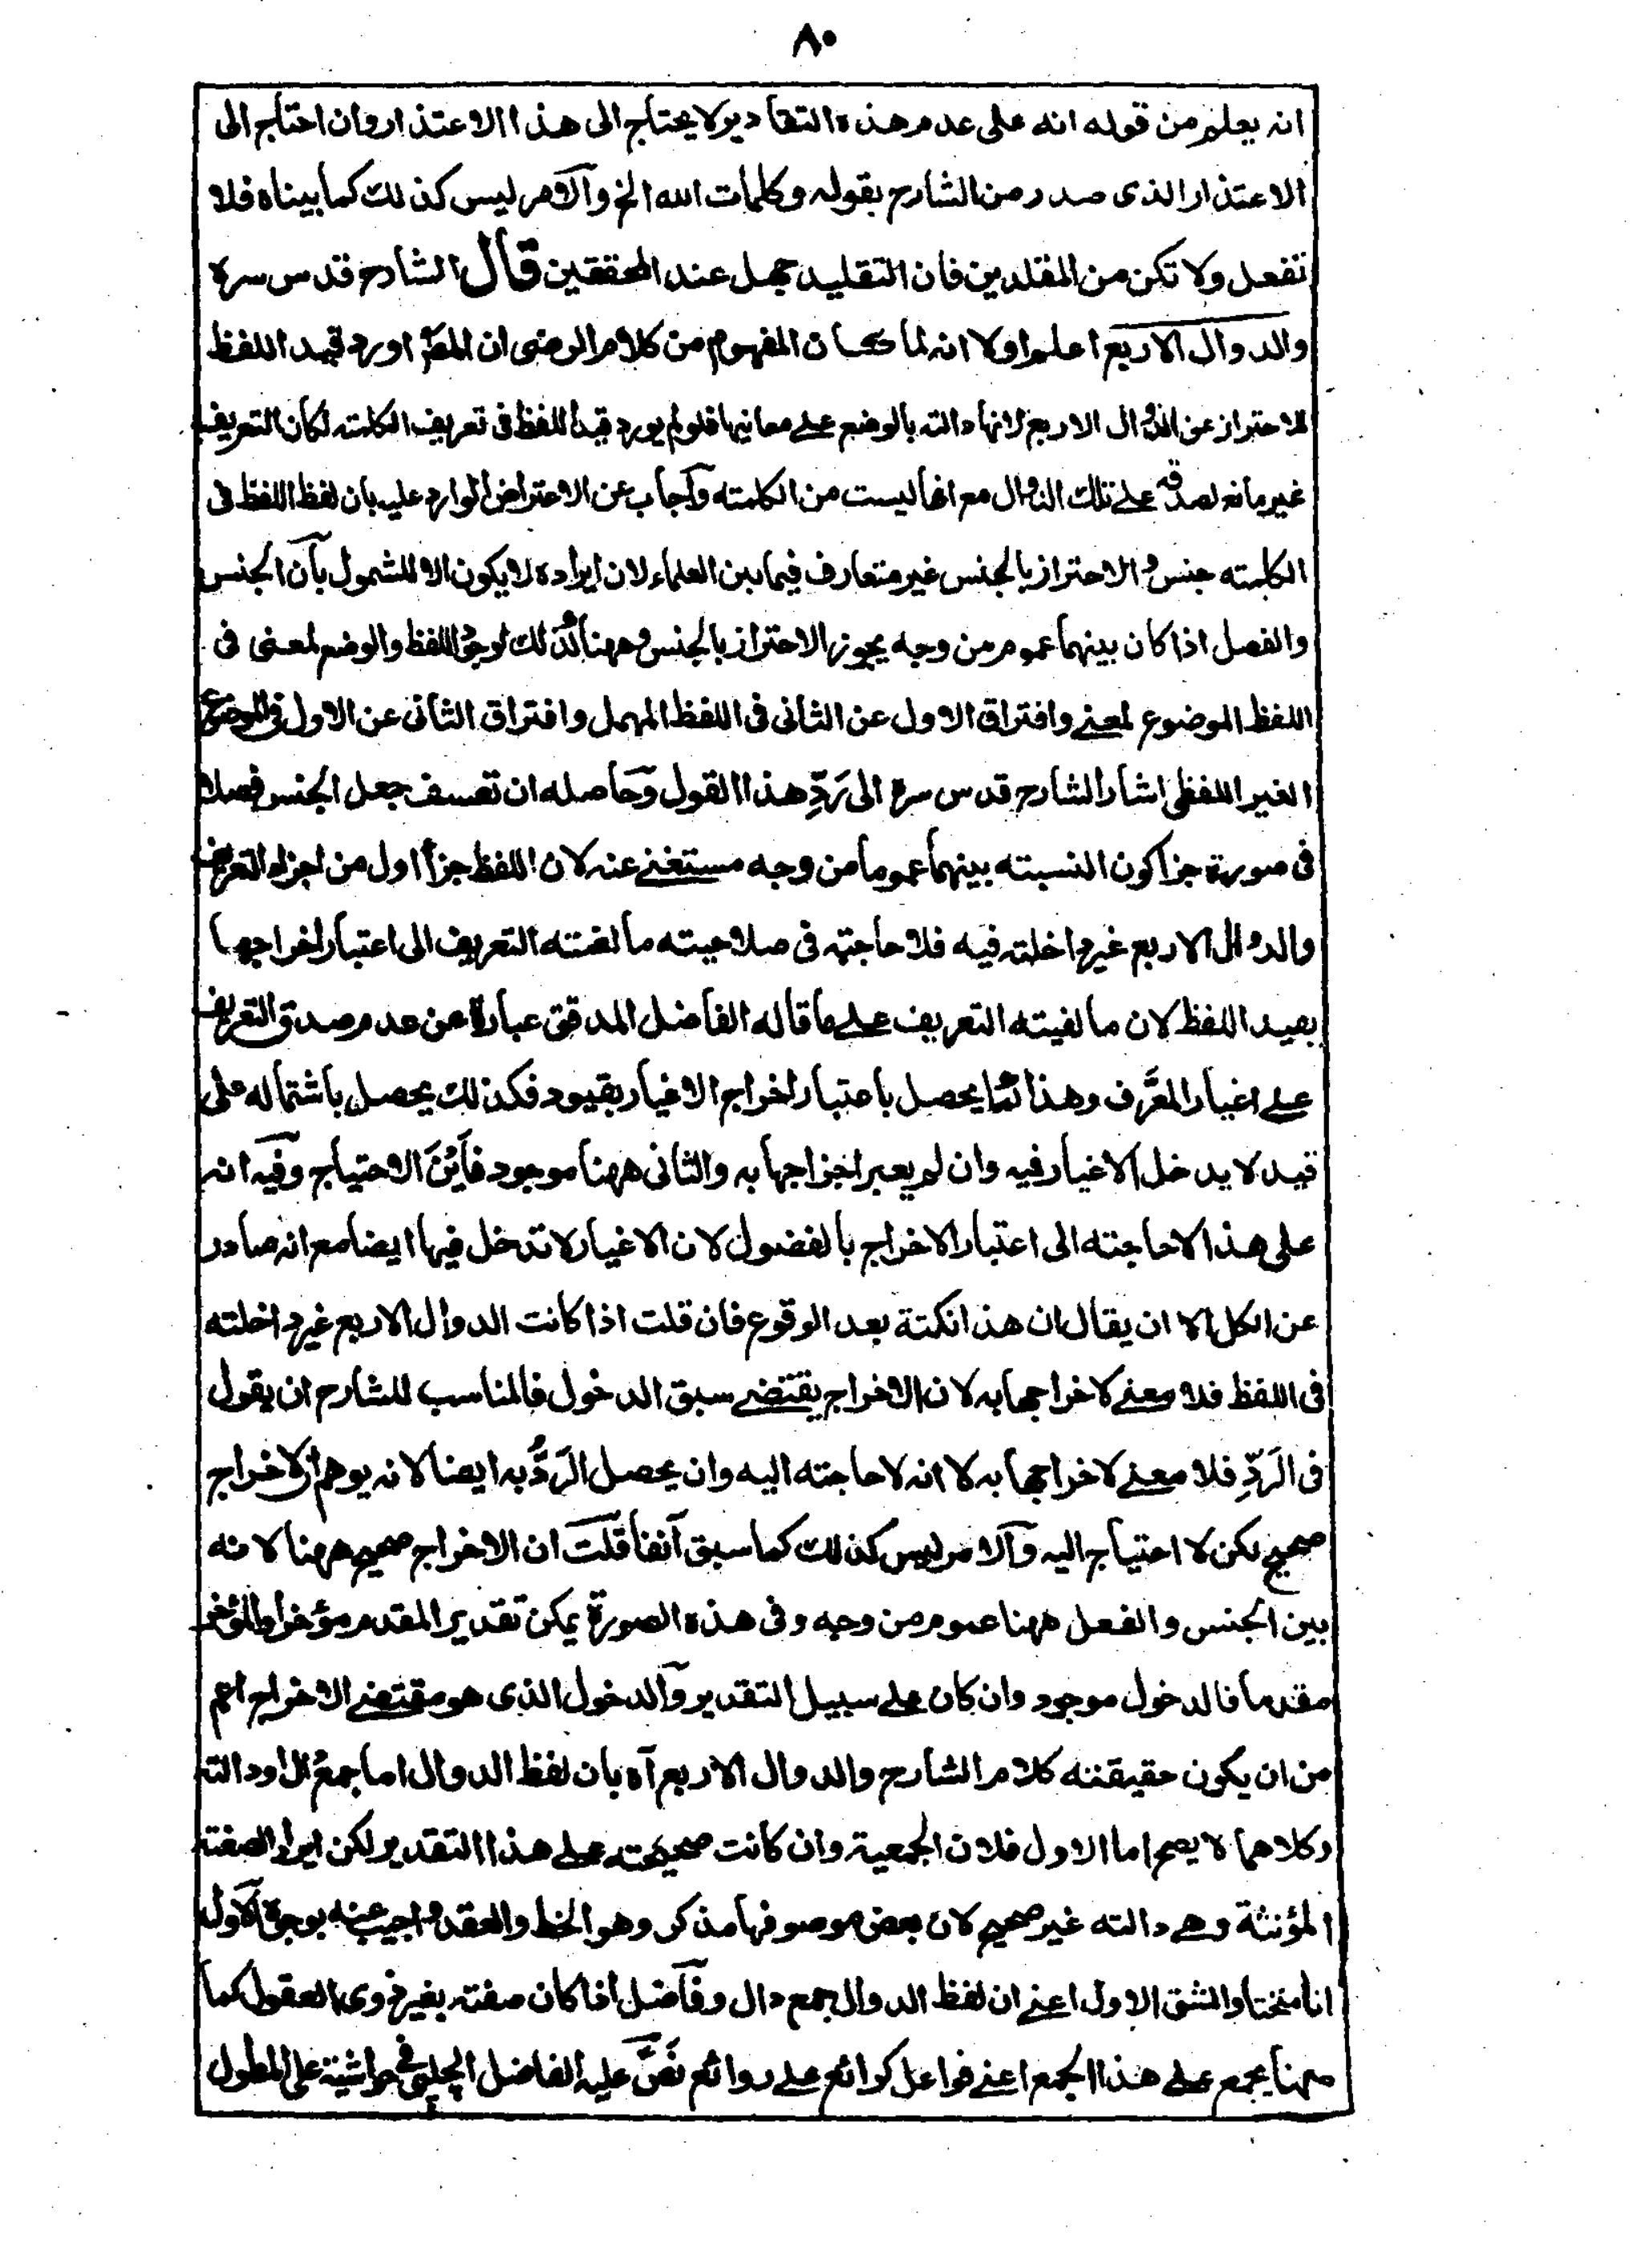 ٨٠
انه يعلم من قوله انه على عدم هذه التقادير لا يحتاج الى هذا الاعتذار وان احتاج الى
الاعتذار الذى صدر من الشارح بقوله وكلمات الله الخ والامر ليس كذلك كما بيناه فلا
تفعل ولا تكن من المقلدين فان التقليد جهل عند المحققين قال الشارح قدس سره
والدوال الاربع اعلم اولا انه لما كان المفهوم من كلام الرضى ان المصؒ اورد قيد اللفظ
للاحتراز عن الدوال الاربع لانها دالته بالوضع على معانيها فلو لم يورد قيد اللفظ فى تعريف الكلمته لكان التعريف
غير مانع لصدقه على تلك الدوال مع انها ليست من الكلمته واجاب عن الاعتراض الوارد عليه بان لفظ اللفظ فى
الكلمته جنس والاحتراز بالجنس غير متعارف فيما بين العلماء لان ايراده لا يكون الا للشمول بان الجنس
والفصل اذا كان بينهما عموم من وجه يجوز الاحتراز بالجنس وههنا كذلك لوجود اللفظ والوضع لمعنى فى
اللفظ الموضوع لمعنے وافتراق الاول عن الثانى فى اللفظ المهمل وافتراق الثانى عن الاول فى الموضوع
الغير اللفظى اشار الشارح قدس سره الى رَدِّ هذا القول وحاصله ان تعسف جعل الجنس فصلا
فى صورة جزا كون النسبته بينهما عموما من وجه مستغنے عنه لان اللفظ جزأ اول من اجزاء التعريف
والدوال الاربع غير داخلته فيه فلا حاجته فى صلاحيته مالغته التعريف الى اعتبار اخراجها
بقيد اللفظ لان مالغيته التعريف على ما قاله الفاضل المدقق عبارة عن عدم صدق التعريف
على اغيار المعَّرف وهذا كما يحصل باعتبار اخراج الاغيار بقيود فكذلك يحصل باشتماله على
قيد لا يدخل الاغيار فيه وان لم يعبر اخراجها به والثانى ههنا موجود فاَيْنَ الاحتياج وفيه انه
على هذا لا حاجته الى اعتبار الاخراج بالفضول لان الاغيار لا تدخل فيها ايضا مع انه صادر
عن الكل الا ان يقال ان هذا نكتة بعد الوقوع فان قلت اذا كانت الدوال الاربع غير داخلته
فى اللفظ فلا معنے لاخراجها به لان الاخراج يقتضے سبق الدخول فالمناسب للشارح ان يقول
فى الَرَدِّ فلا معنے لاخراجها به لا انه لا حاجته اليه وان يحصل الَردُّ به ايضا لانه يوهم ان الاخراج
صحيح لكن لا احتياج اليه والامر ليس كذلك كما سبق آنفا قلت ان الاخراج صحيح ههنا لانه
بين الجنس والفعل ههنا عموم من وجه وفى هذه الصورة يمكن تقدير المقدم مؤخرا والمؤخر
مقدما فالدخول موجود وان كان على سبيل التقدير والدخول الذى هو مقتضے الاخراج اعم
من ان يكون حقيقته كلام الشارح والدوال الاربع آه بان لفظ الدوال اما جمع دال او دالته
وكلاهما لا يصح اما الاول فلان الجمعية وان كانت صحيحته على هذا التقدير لكن ايراد الصفته
المؤنثة وهے دالته غير صحيح لان بعض موصوفها مذكر وهو الخط والعقد واجيب عنه بوجوه الاول
انا نختار الشق الاول اعنے ان لفظ الدوال جمع دال وفاضل اذا كان صفته بغير ذوى العقول كما
ههنا يجمع على هذا الجمع اعنے فواعل كرائع على روائع نَصَّ عليه الفاضل الچلپى فى حواشيته على المطول